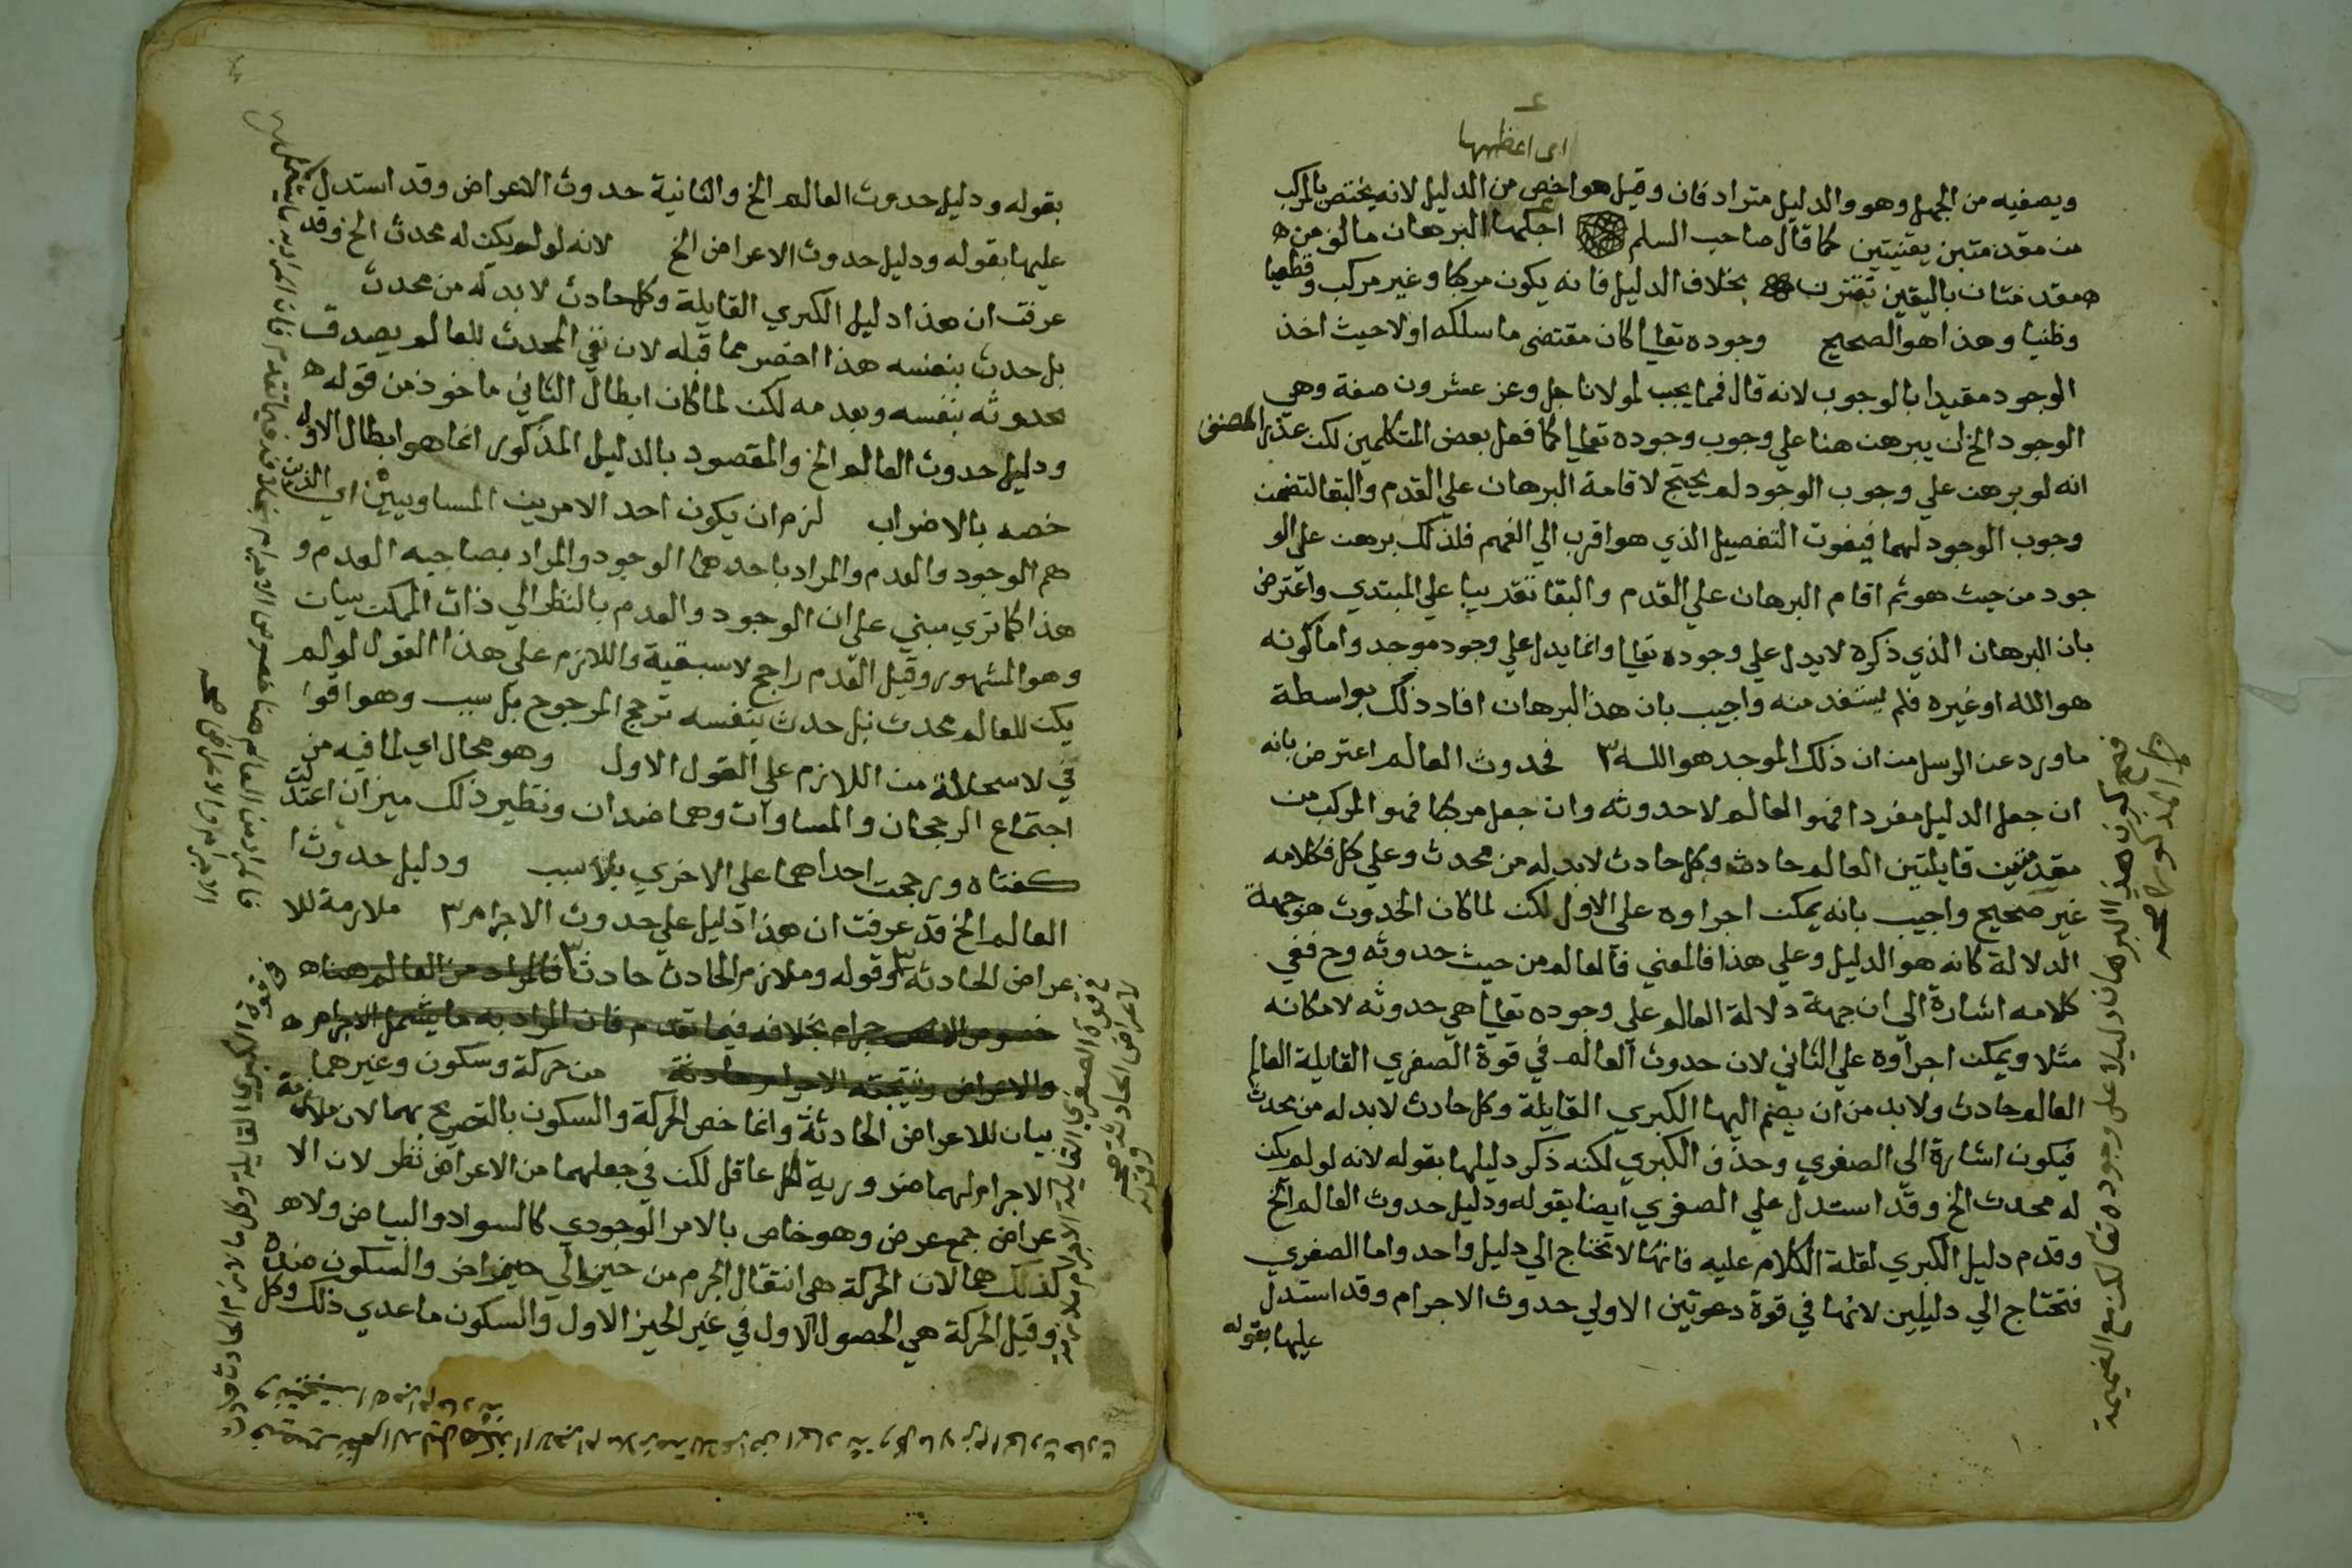 اى اعظمها
ويصفيه من الجهل وهو والدليل مترادفان وقيل هو اخص من الدليل لانه يختص بالمركب
من مقدمتين يقنيتين كما قال صاحب السلم اجلها البرهان ما الف من ه
مقدمتان باليقين تقترن بخلاف الدليل فانه يكون مركبا وغير مركب وقطعيا
وظنيا وهذا هو الصحيح وجوده تعالى كان مقتضى ما سلكه اولا حيث اخذ
الوجود مقيدا بالوجوب لانه قال فمما يجب لمولانا جل وعز عشرون صفة وهي
الوجود الخ ان يبرهن هنا علي وجوب وجوده تعالى كما فعل بعض المتكلمين لكن عذر المصنف
انه لو برهن علي وجوب الوجود لم يحتج لاقامة البرهان علي القدم والبقا لتضمن
وجوب الوجود لهما فيفوت التفصيل الذي هو اقرب الي الفهم فلذلك برهن علي الو
جود من حيث هو ثم اقام البرهان علي القدم والبقا تقريبا علي المبتدي واعترض
بان البرهان الذي ذكره لا يدل علي وجوده تعالى وانما يدل علي وجود موجد واما كونه
هو الله او غيره فلم يستفد منه واجيب بان هذا البرهان افاد ذلك بواسطة
ما ورد عن الرسل من ان ذلك الموجد هو الله ٣ فحدوث العالم اعترض بانه
ان جعل الدليل مفردا فهو العالم لا حدوثه وان جعل مركبا فهو المركب من
مقدمتين قايلتين العالم حادث وكل حادث لابد له من محدث وعلي كل فكلامه
غير صحيح واجيب بانه يمكن اجراوه علي الاول لكن لما كان الحدوث هو جهة
الدلالة كانه هو الدليل وعلي هذا فالمعني فالعالم من حيث حدوثه وح ففي
كلامه اشارة الي ان جهة دلالة العالم علي وجوده تعالى هي حدوثه لا مكانه
مثلا ويمكن اجراوه علي الثاني لان حدوث العالم في قوة الصغري القايلة العالم
العالم حادث ولابد من ان يضم اليها الكبري القايلة وكل حادث لابد له من محدث
فيكون اشارة الي الصغري وحذف الكبري لكنه ذكر دليلها بقوله لانه لو لم يكن
له محدث الخ وقد استدل علي الصغري ايضا بقوله ودليل حدوث العالم الخ
وقدم دليل الكبري لقلة الكلام عليه فانها لا تحتاج الي دليل واحد واما الصغري
فتحتاج الي دليلين لانها في قوة دعوتين الاولي حدوث الاجرام وقد استدل
عليها بقوله
كون هذا البرهان دليلا علي وجوده تعالى انما هو مع الضميمة
المذكورة صح
بقوله ودليل حدوث العالم الخ والثانية حدوث الاعراض وقد استدل
عليها بقوله ودليل حدوث الاعراض الخ لانه لو لم يكن له محدث الخ وقد
عرفت ان هذا دليل الكبري القايلة وكل حادث لابد له من محدث
بل حدث بنفسه هذا اخصر مما قبله لان نفي المحدث للعالم يصدق
بحدوثه بنفسه وبعدمه لكن لما كان ابطال الثاني ماخوذ من قوله ه
ودليل حدوث العالم الخ والمقصود بالدليل المذكور انما هو ابطال الاول
خصه بالاضراب لزم ان يكون احد الامرين المساويين اي الذين
هم الوجود والعدم والمراد باحدهما الوجود والمراد بصاحبه العدم و
هذا كما تري مبني علي ان الوجود والعدم بالنظر الي ذات الممكن سيان
وهو المشهور وقيل العدم راجح لاسبقية واللازم علي هذا القول لو لم
يكن للعالم محدث بل حدث بنفسه ترجح المرجوح بل سبب وهو اقوا
في لاستحالة من اللازم علي القول الاول وهو محال اي لما فيه من
اجتماع الرجحان والمساوات وهما ضدان ونظير ذلك ميزان اعتدلت
كفتاه ورجحت احداهما علي الاخري بلا سبب ودليل حدوث ا
العالم الخ قد عرفت ان هذا دليل علي حدوث الاجرام ٣ ملازمة للا
عراض الحادثه وقوله وملازم الحادث حادث فالمراد من العالم هنا ه
خصوص الاجرام بخلافه فيما تقدم فان المراد به ما يشمل الاجرام ه
والاعراض ونتيجته الاجرام حادثة من حركة وسكون وغيرهما
بيان للاعراض الحادثة وانما خص الحركة والسكون بالتصريح بهما لان ملازمة
الاجرام لهما ضرورية لكل عاقل لكن في جعلهما من الاعراض نظر لان الا
عراض جمع عرض وهو خاص بالامر الوجودي كالسواد والبياض ولا ه
كذلك هما لان الحركة هي انتقال الجرم من حيز الي حيز اخر والسكون ضده
وقيل الحركة هي الحصول الاول في غير الحيز الاول والسكون ما عدي ذلك وكل
فالمراد من العالم هنا خصوص الاجرام بخلافه فيما تقدم فان المراد به ما يشمل
الاجرام والاعراض صح
في قوة الكبري القايلة وكل ما لازم الحادث حادث
في قوة الصغري القايلة الاجرام ملازمة
للاعراض الحادثة صح
وقوله
الاجرام ملازمة للاعراض الحادثة وكل ما لازم الحادث حادث